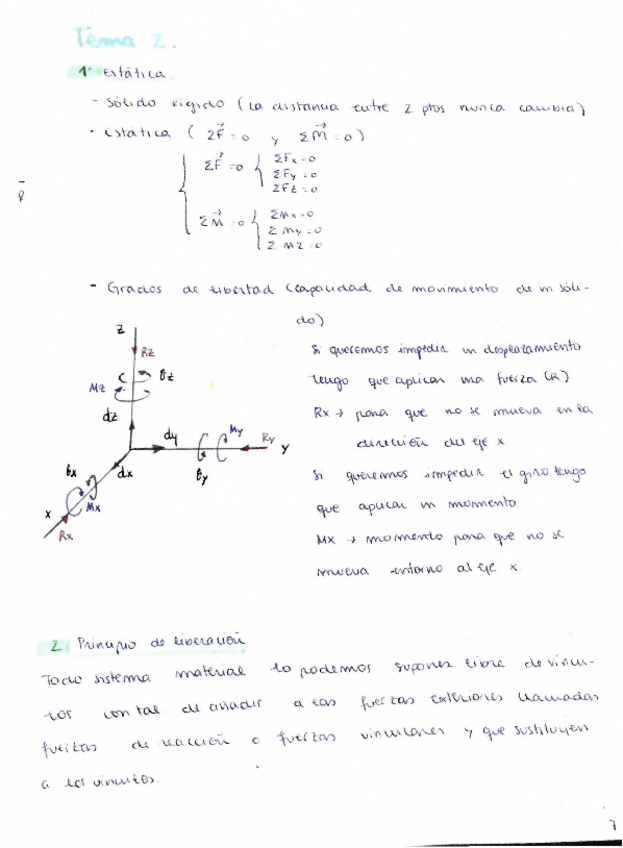 Tema 2.
1. Estática.
- Sólido rígido (la distancia entre 2 ptos nunca cambia)
- Estática ( ΣF⃗=0 y ΣM⃗=0)
ΣF⃗=0 { ΣFx=0
ΣFy=0
ΣFz=0
ΣM⃗=0 { ΣMx=0
ΣMy=0
ΣMz=0
- Grados de libertad (capacidad de movimiento de un sóli-
do)
Z
Rz
θz
Mz
dz
dy
My
Ry
Y
θy
θx
dx
Mx
X
Rx
Si queremos impedir un desplazamiento
tengo que aplicar una fuerza (R)
Rx → para que no se mueva en la
dirección del eje x
Si queremos impedir el giro tengo
que aplicar un momento.
Mx → momento para que no se
mueva entorno al eje x.
2. Principio de liberación
Todo sistema material lo podemos suponer libre de víncu-
los con tal de añadir a las fuerzas exteriores llamadas
fuerzas de reacción o fuerzas vinculares y que sustituyen
a los vínculos.
7